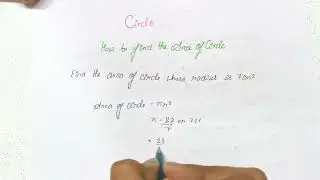 Circle
How to find the Area of Circle
Find the area of circle whose radius is 7cm?
Area of circle = πr²
π = 22/7 or 3.14
= 22